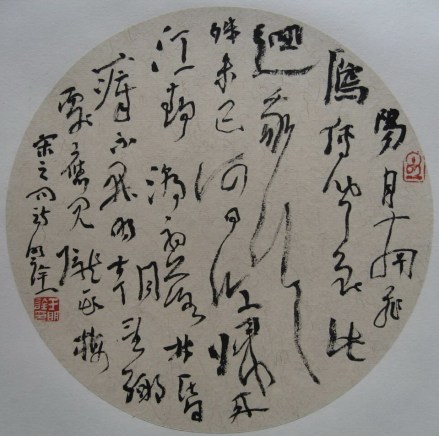 陽月南飛
雁傳聞至此
迴我行
殊未已何日復歸來
江靜潮初落林昏
瘴不開明朝望鄉
處應見隴頭梅
宋之問詩明詮